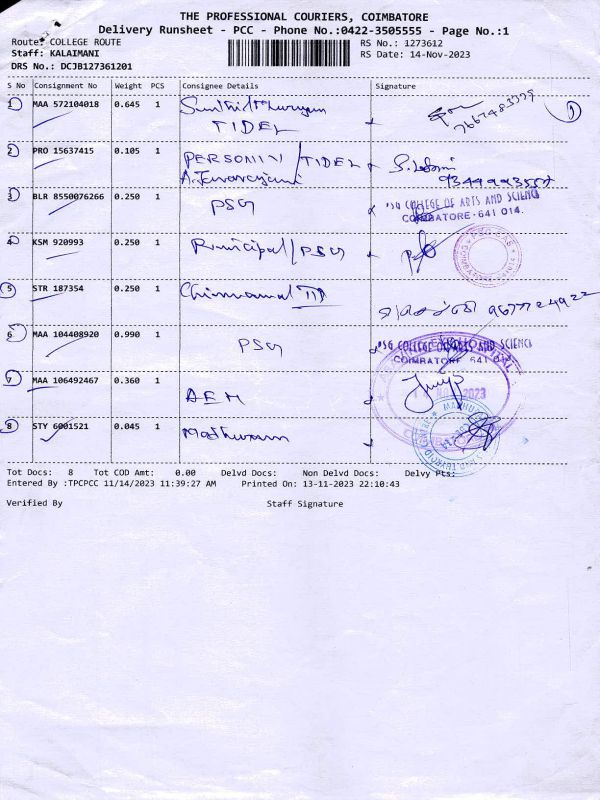 THE PROFESSIONAL COURIERS, COIMBATORE
Delivery Runsheet - PCC - Phone No.:0422-3505555 - Page No.:1
Route: COLLEGE ROUTE RS No.: 1273612
Staff: KALAIMANI RS Date: 14-Nov-2023
DRS No.: DCJB127361201
S No Consignment No Weight PCS Consignee Details Signature
1 MAA 572104018 0.645 1
TIDEL
2 PRO 15637415 0.105 1 / TIDEL
3 BLR 8550076266 0.250 1 PSG PSG COLLEGE OF ARTS AND SCIENCE
COIMBATORE-641 014.
4 KSM 920993 0.250 1 / PSG
5 STR 187354 0.250 1
6 MAA 104408920 0.990 1 PSG PSG COLLEGE OF ARTS AND SCIENCE
COIMBATORE 641
7 MAA 106492467 0.360 1 2023
8 STY 6001521 0.045 1
Tot Docs: 8 Tot COD Amt: 0.00 Delvd Docs: Non Delvd Docs: Delvy Pts:
Entered By :TPCPCC 11/14/2023 11:39:27 AM Printed On: 13-11-2023 22:10:43
Verified By Staff Signature